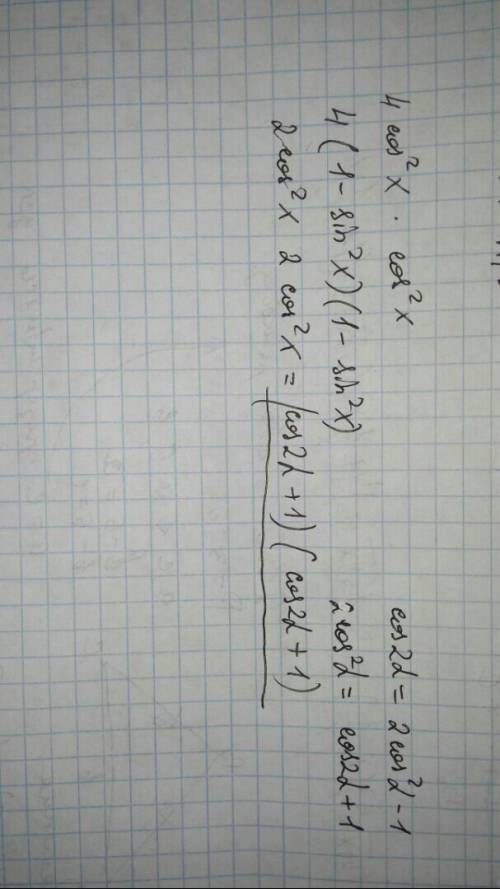 4 cos²x · cos²x
4(1 - sin²x)(1 - sin²x)
2 cos²x 2 cos²x = (cos2α + 1)(cos2α + 1)
cos2α = 2cos²α - 1
2cos²α = cos2α + 1